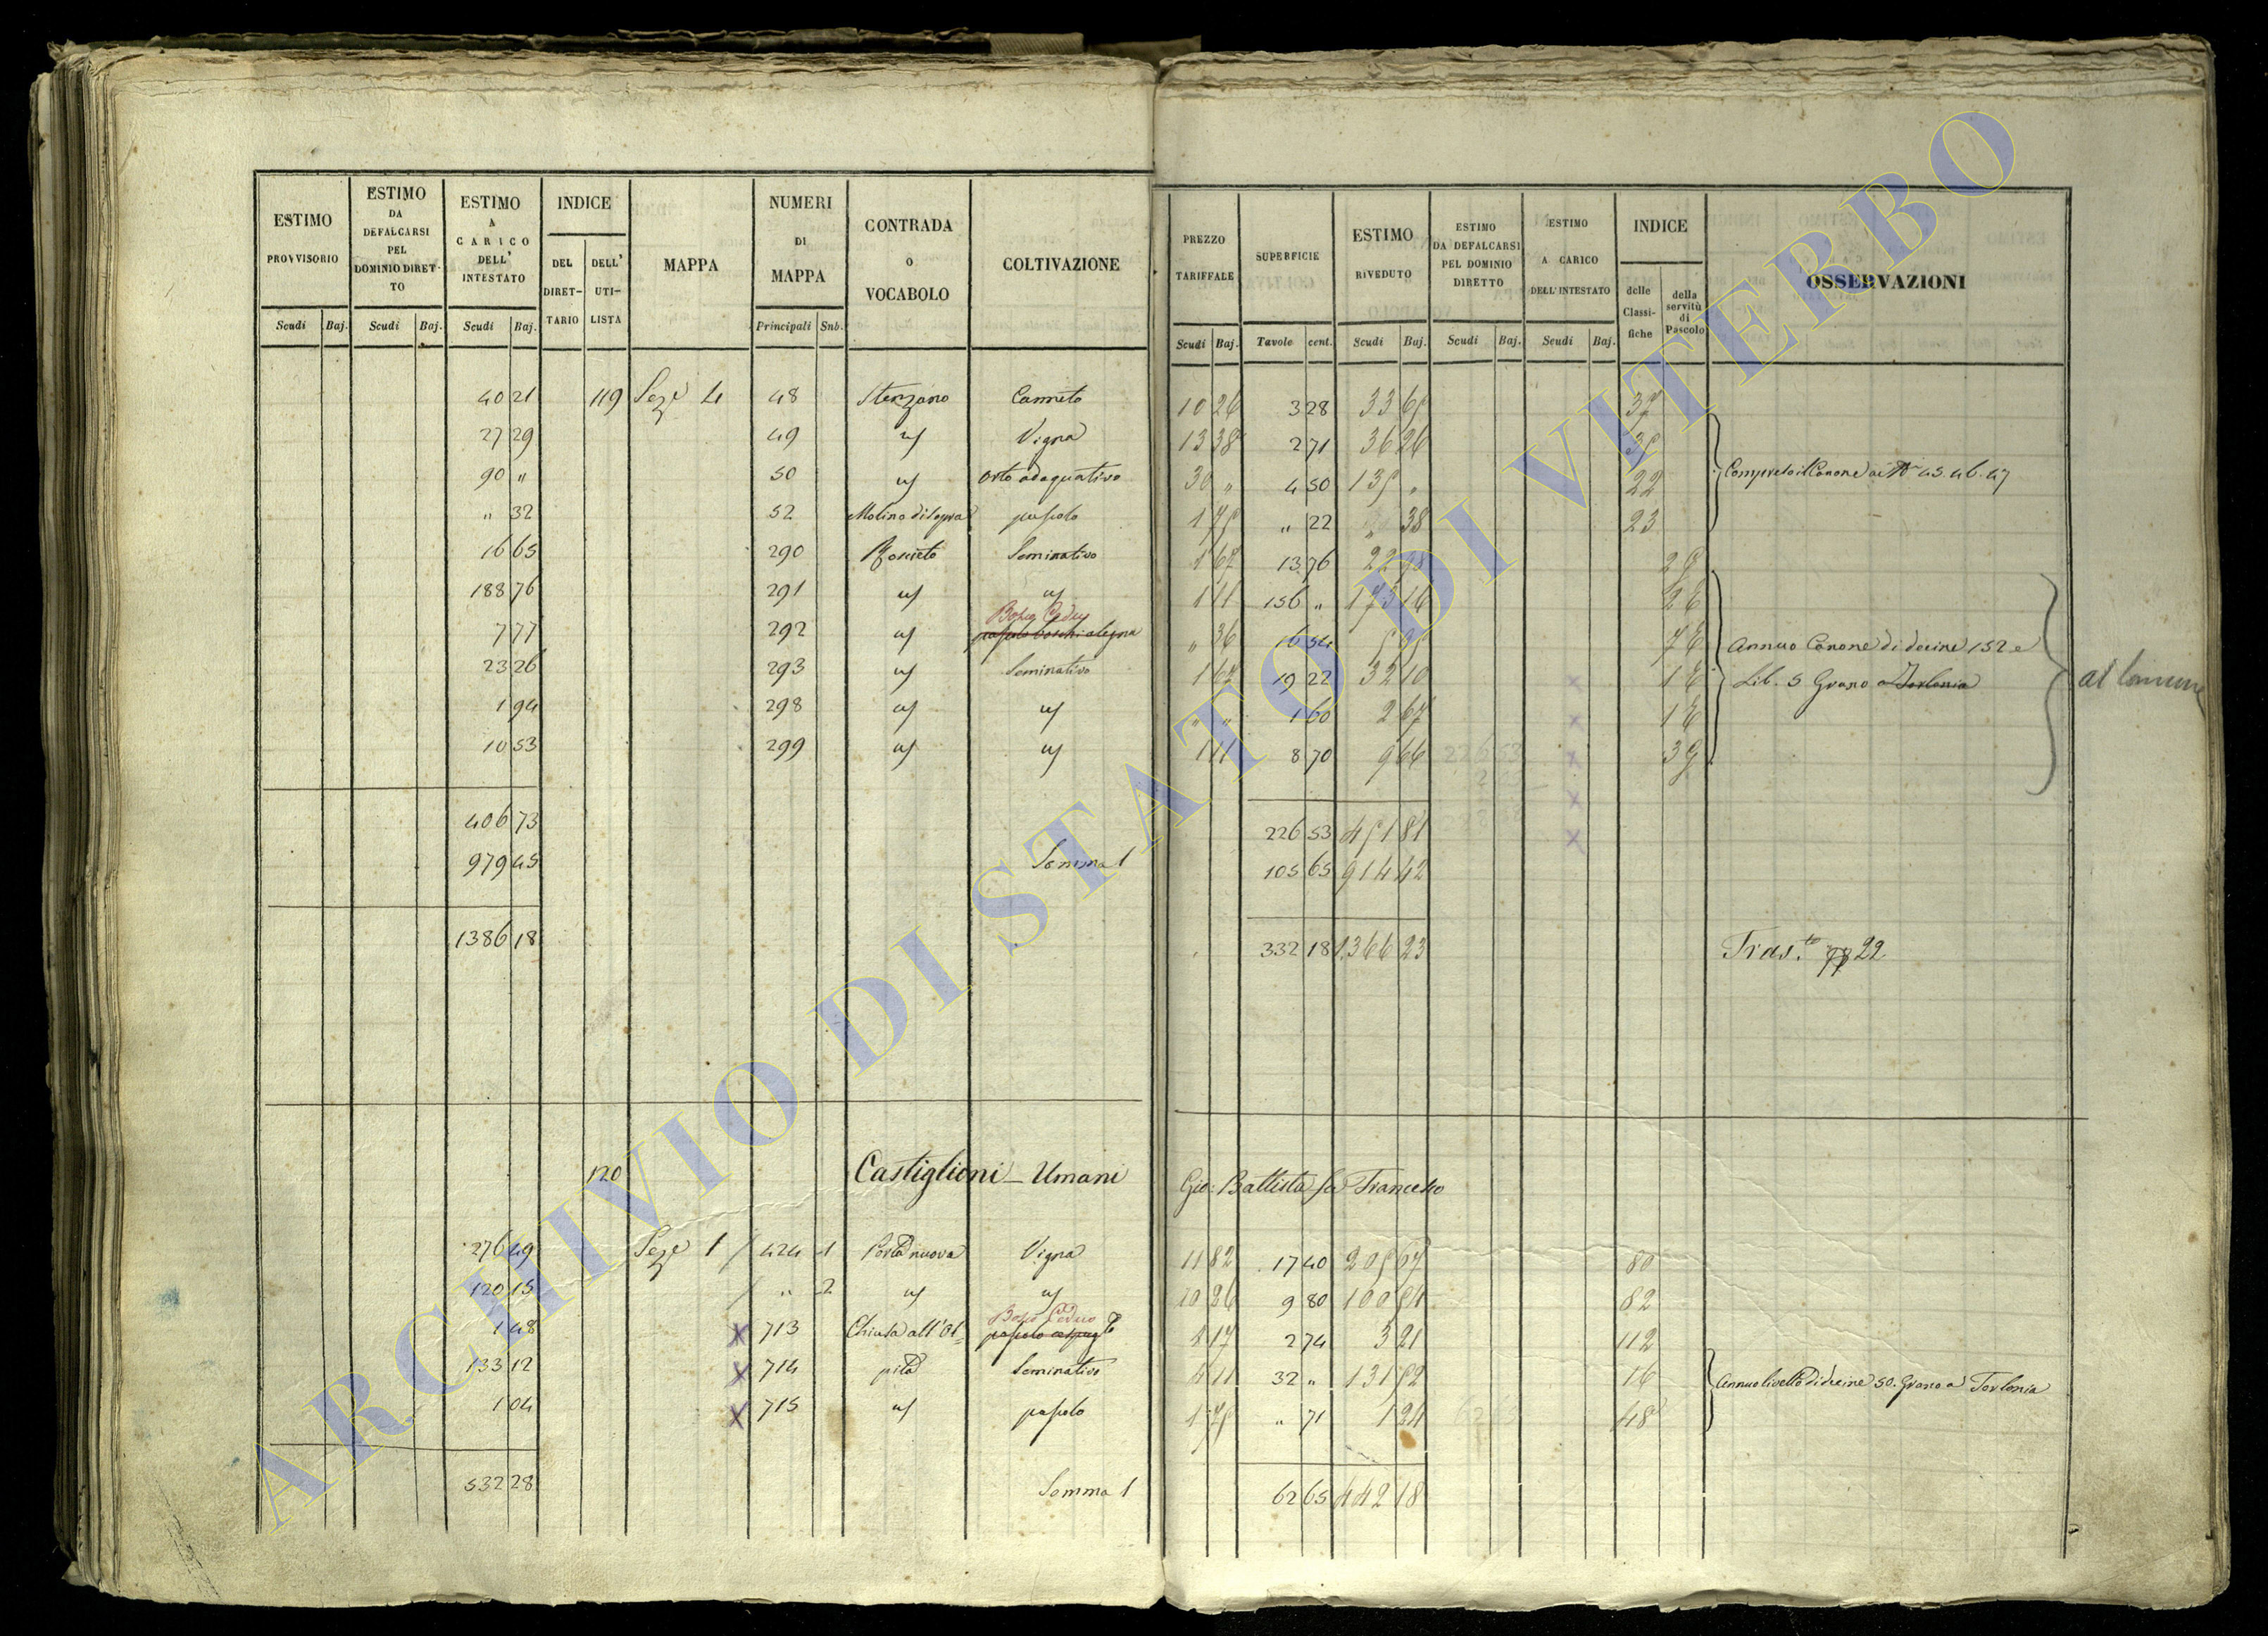 ESTIMO PROVVISORIO
ESTIMO DA DEFALCARSI PEL DOMINIO DIRETTO
ESTIMO A CARICO DELL' INTESTATO
INDICE
DEL DIRETTARIO
DELL' UTILISTA
MAPPA
NUMERI DI MAPPA
CONTRADA O VOCABOLO
COLTIVAZIONE
Scudi Baj. Scudi Baj. Scudi Baj. Principali Sub.
PREZZO TARIFFALE
SUPERFICIE
ESTIMO RIVEDUTO
ESTIMO DA DEFALCARSI PEL DOMINIO DIRETTO
ESTIMO A CARICO DELL' INTESTATO
INDICE
delle Classifiche
della servitù di Pascolo
OSSERVAZIONI
Scudi Baj. Tavole cent. Scudi Baj. Scudi Baj. Scudi Baj.
40 21 119 Seze 4 48 Stenzano Canneto 10 26 3 28 33 65
27 29 49 " Vigna 13 38 2 71 36 26
90 " 50 " Orto adaquativo 30 " 4 50 135 " 22
" 32 52 Molino di Sopra pascolo 1 75 " 22 " 38 23
16 65 290 Seminativo 1 67 13 76
188 76 291 " " 1 11 156 " 173 16
7 77 292 " Bosco Ceduo pascolo boschi a legna " 36 16 54
23 26 293 " Seminativo 1 67 19 22 32 10
1 94 298 " " " " 1 60 2 67
10 53 299 " " 1 11 8 70 9 66
Compreso il Canone ai N 45. 46. 47
Annuo Canone di decine 152 e
Lib. 5 Grano a Torlonia
al Comune
406 73 226 53 451 81
979 45 Somma 1 105 65 914 42
1386 18 332 18 1366 23 Tras.to 22
120 Castiglioni - Umani Gio: Battista fu Francesco
276 49 Seze 1 424 1 Porta nuova Vigna 11 82 17 40 205 67 80
120 15 " 2 " " 10 26 9 80 100 54 82
1 48 713 Chiusa all'Os- Bosco Ceduo 1 17 2 74 3 21 112
133 12 714 pita Seminativo 4 11 32 " 131 52 16
1 04 715 " pascolo 1 75 " 71 1 24 48
Annuo livello di decine 50. Grano a Torlonia
532 28 Somma 1 62 65 442 18
ARCHIVIO DI STATO DI VITERBO